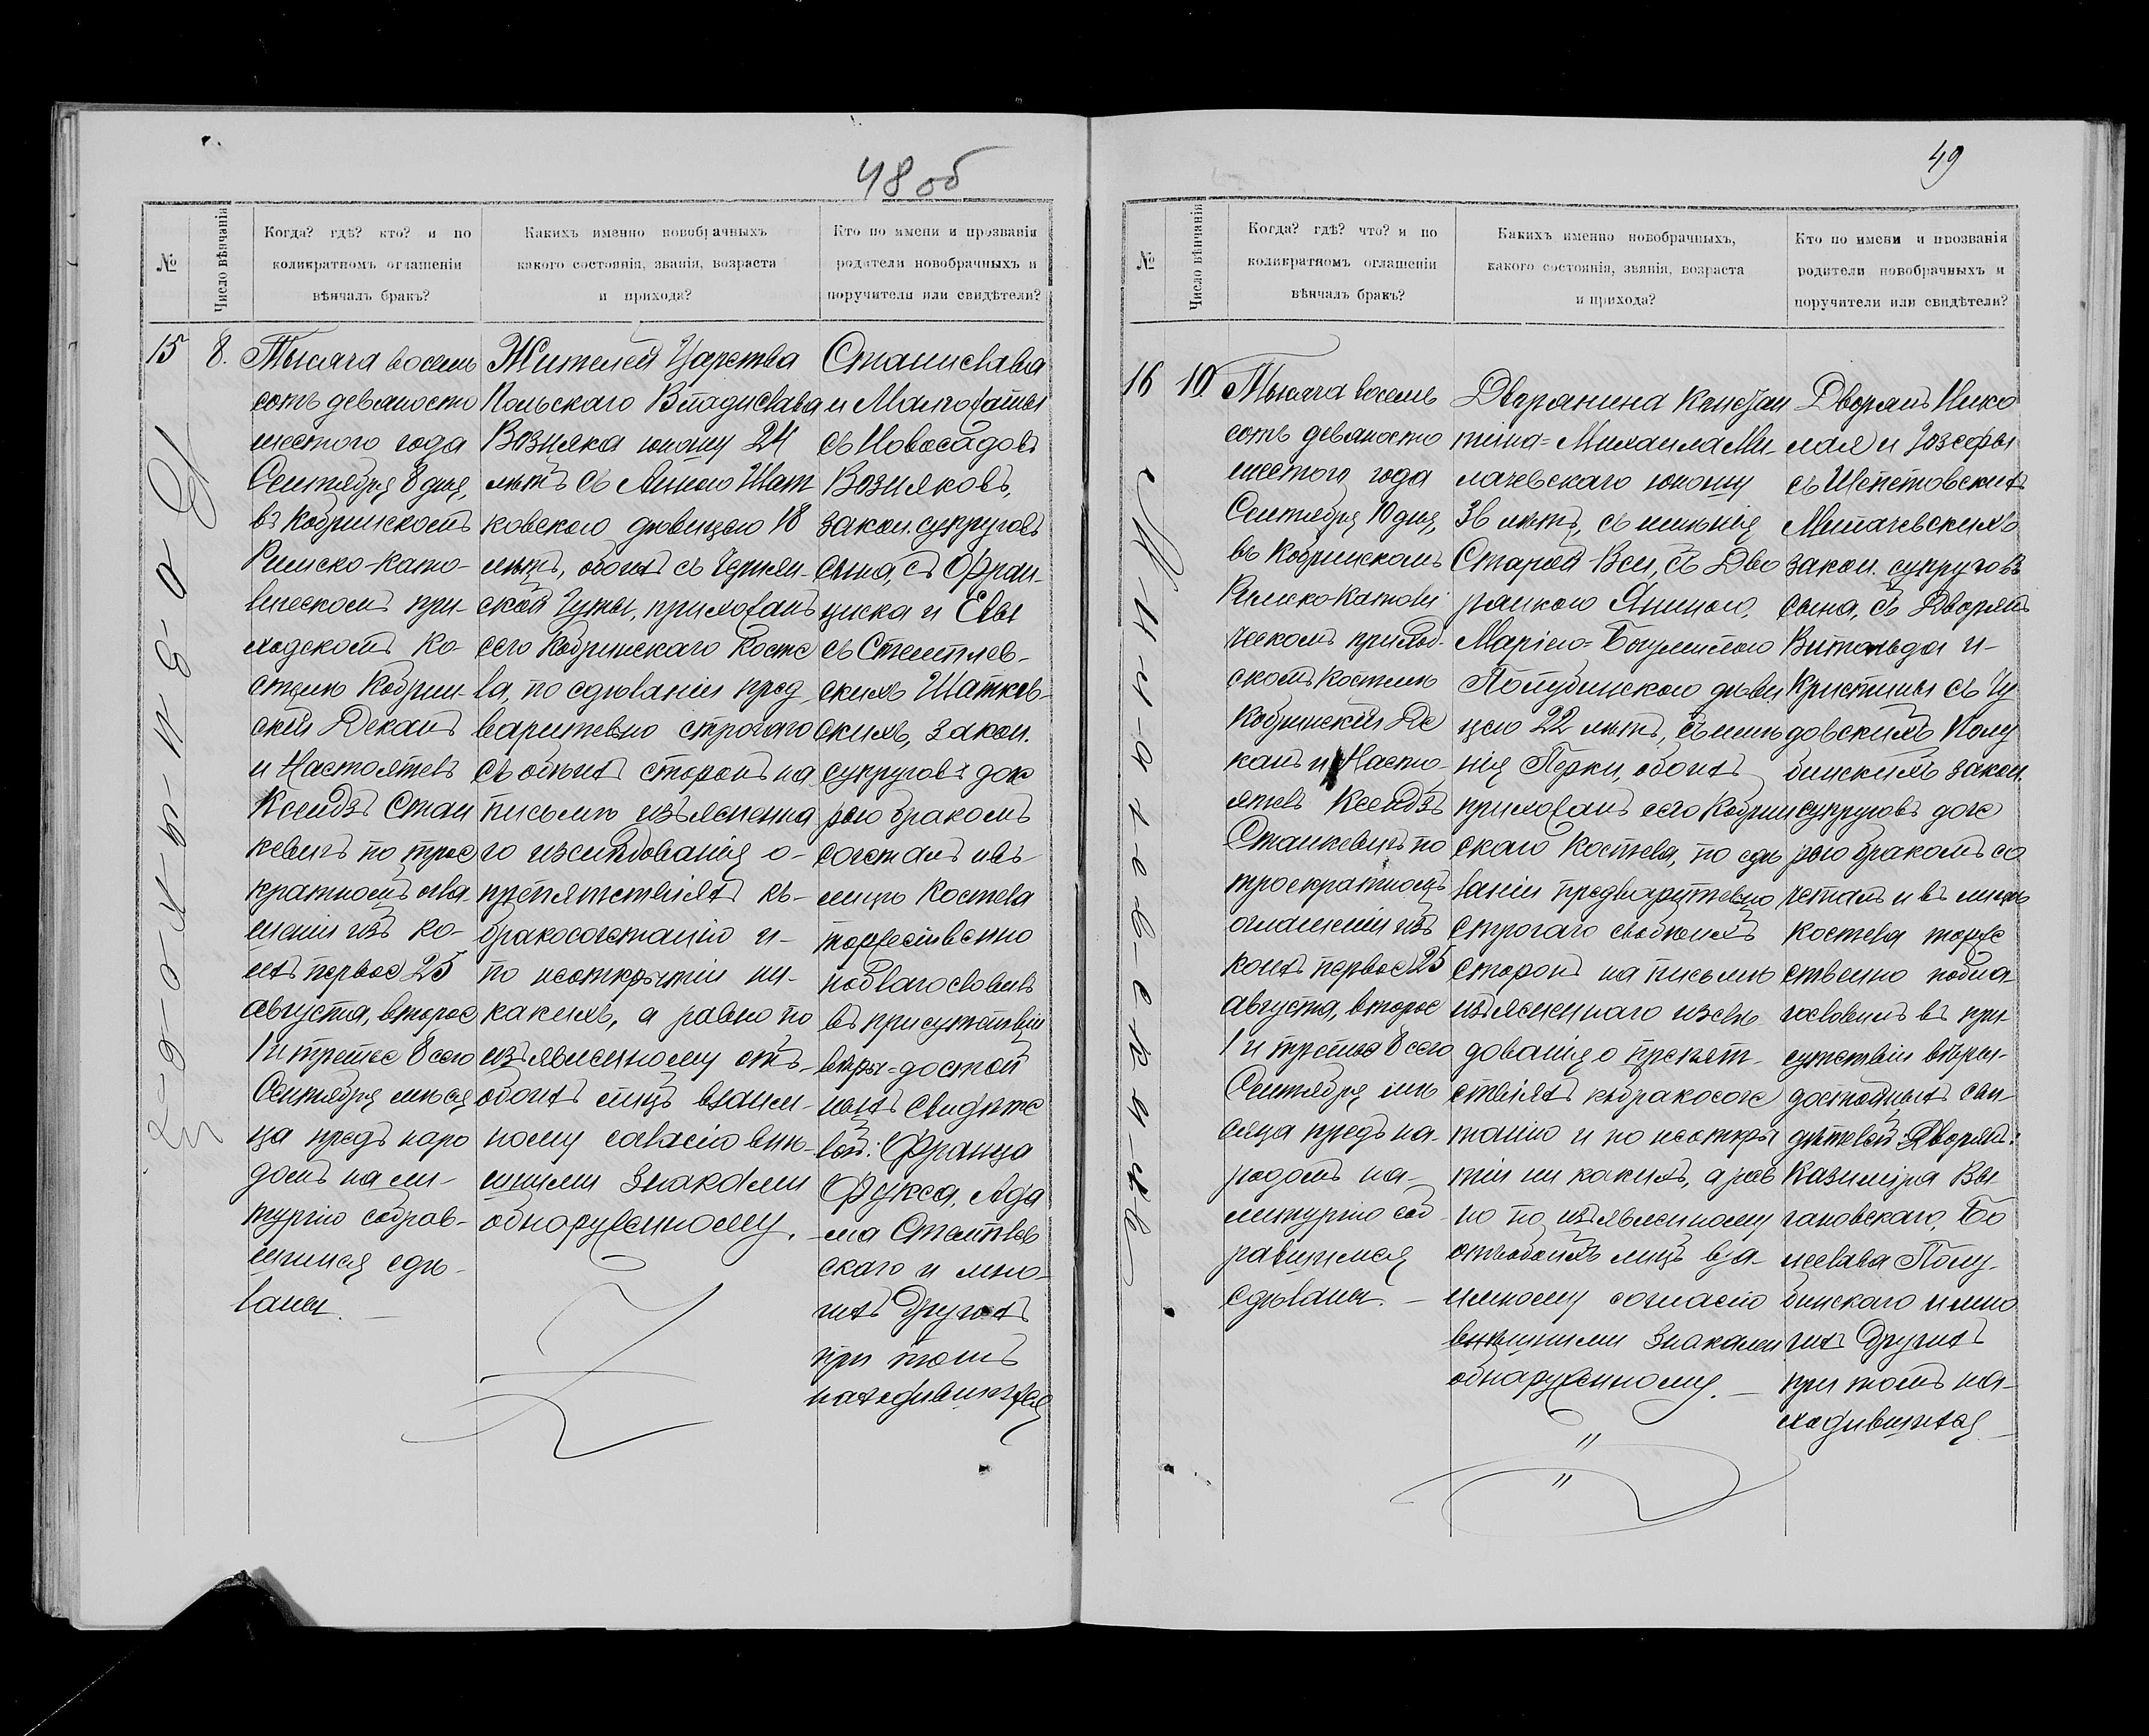 48 об
№
Число вѣнчанія
Когда? гдѣ? кто? и по
коликратномъ оглашеніи
вѣнчалъ бракъ?
Какихъ именно новобрачныхъ
какого состоянія, званія, возраста
и прихода?
Кто по имени и прозванія
родители новобрачныхъ и
поручители или свидѣтели?
15
8.
Тысяча восемь
сотъ девяносто
шестого года
Сентября 8 дня,
въ Кобринскомъ
Римско-Като-
лическомъ при-
ходскомъ Ко-
стелѣ Кобрин-
скій Деканъ
и Настоятель
Ксендзъ Стан
кевичъ по трое
кратномъ огла-
шеніи изъ ко-
ихъ первое 25
августа, второе
1 и третее 8 сего
Сентября мѣся
ца предъ наро
домъ на ли-
тургію собрав-
шимся сдѣ-
ланы.
Жителей Царства
Польскаго Владислава
Возняка юношу 24
лѣтъ съ Анною Шат
ковскою дѣвицею 18
лѣтъ, обоихъ съ Черня-
ской Гуты, прихожанъ
сего Кобринскаго Косте
ла, по сдѣланіи пред
варительно строгаго
съ обѣихъ сторонъ на
письмѣ изъясненна
го изслѣдованія о-
препятствіяхъ къ-
бракосочетанію и-
по неоткрытіи ни-
какихъ, а равно по
изъявленному отъ-
обоихъ лицъ взаим-
ному согласію внѣ-
шними знаками
обнаруженному.
Станислава
и Малгожаты
съ Новосадовъ
Возняковъ,
закон. супруговъ
сына, съ Фран-
циска и Евы
съ Стемплев-
скихъ Шатков-
скихъ, закон.
супруговъ доче
рью бракомъ
сочеталъ и въ-
лицѣ Костела
торжественно
подблагословилъ
въ присутствіи
вѣры-достой
ныхъ свидѣте
лей: Франца
Фукса, Ада
ма Стемплев
скаго и мно-
гихъ другихъ
при томъ
находившихся
49
№
Число вѣнчанія
Когда? гдѣ? что? и по
коликратномъ оглашеніи
вѣнчалъ бракъ?
Какихъ именно новобрачныхъ,
какого состоянія, званія, возраста
и прихода?
Кто по имени и прозванія
родители новобрачныхъ и
поручители или свидѣтели?
16
10.
М-и-л-а-ч-е-в-с-к-и-х-ъ
Тысяча восемь
сотъ девяносто
шестого года
Сентября 10 дня,
въ Кобринскомъ
Римско Католи
ческомъ приход-
скомъ Костелѣ
Кобринскій Де
канъ и Насто-
ятель Ксендзъ
Станкевичъ по
троекратномъ
оглашеніи изъ
коихъ первое 25
августа, второе
1 и третье 8 сего
Сентября мѣ
сяца предъ на-
родомъ на-
литургію соб
равшимся
сдѣланы. -
Дворянина Констан
тина-Михаила Ми-
лачевскаго юношу
36 лѣтъ, съ имѣнія
Старой Вси, съ Дво
рянкою Яниною,
Маріею-Богумилою
Полубинскою дѣви
цею 22 лѣтъ, съ имѣ
нія Перки, обоихъ
прихожанъ сего Кобрин
скаго Костела, по сдѣ
ланіи предварительно
строгаго съ обоихъ
сторонъ на письмѣ
изъясненнаго изслѣ
дованія о препят-
ствіяхъ къ бракосоче
танію и по неоткры
тіи ни какихъ, а рав
но по изъявленному
отъ обоихъ лицъ вза-
имному согласію
внѣшними знаками
обнаруженному. -
Дворянъ Нико
лая и Іозефы
съ Шепетовскихъ
Милачевскихъ
закон. супруговъ
сына, съ Дворянъ
Витольда и-
Кристины съ Гу
довскихъ Полу
бинскихъ закон.
супруговъ доче
рью бракомъ со
четалъ и въ лицѣ
Костела торже
ственно побла-
гословилъ въ при-
сутствіи вѣры-
достойныхъ сви-
дѣтелей: Дворянъ:
Казиміра Вы
гановскаго, Бо
леслава Полу-
бинскаго и мно
гихъ другихъ
при томъ на-
ходившихся